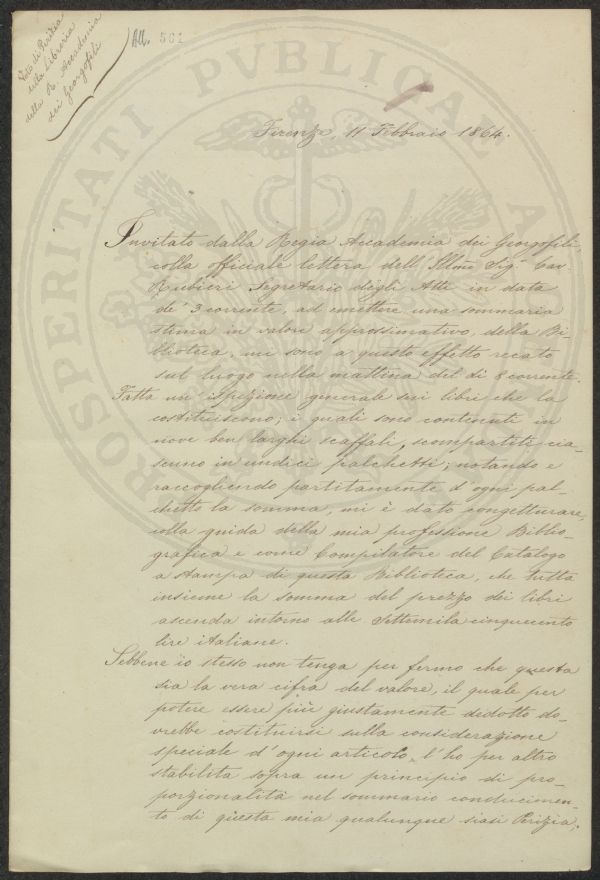 Nota di Perizia
della Libreria
della R. Accademia
dei Georgofili
All. 561
PROSPERITATI PUBLICAE A
Firenze, 11 Febbraio 1864.
Invitato dalla Regia Accademia dei Georgofili,
colla officiale lettera dell'Illmo Sigr Cav.
Rubieri Segretario degli Atti in data
de' 3 corrente, ad emettere una sommaria
stima in valore approssimativo, della Bi-
blioteca, mi sono a questo effetto recato
sul luogo nella mattina del dì 8 corrente.
Fatta un'ispezione generale sui libri che la
costituiscono; i quali sono contenuti in
nove ben larghi scaffali, scompartiti cia-
scuno in undici palchetti; notando e
raccogliendo partitamente d'ogni pal-
chetto la somma, mi è dato congetturare,
colla guida della mia professione Biblio-
grafica e come Compilatore del Catalogo
a stampa di questa Biblioteca, che tutta
insieme la somma del prezzo dei libri
ascenda intorno alle Settemila cinquecento
lire italiane.
Sebbene io stesso non tenga per fermo che questa
sia la vera cifra del valore, il quale per
potere essere più giustamente didotto do-
vrebbe costituirsi sulla considerazione
speciale d'ogni articolo, l'ho per altro
stabilita sopra un principio di pro-
porzionalità nel sommario conducimen-
to di questa mia qualunque siasi Perizia;